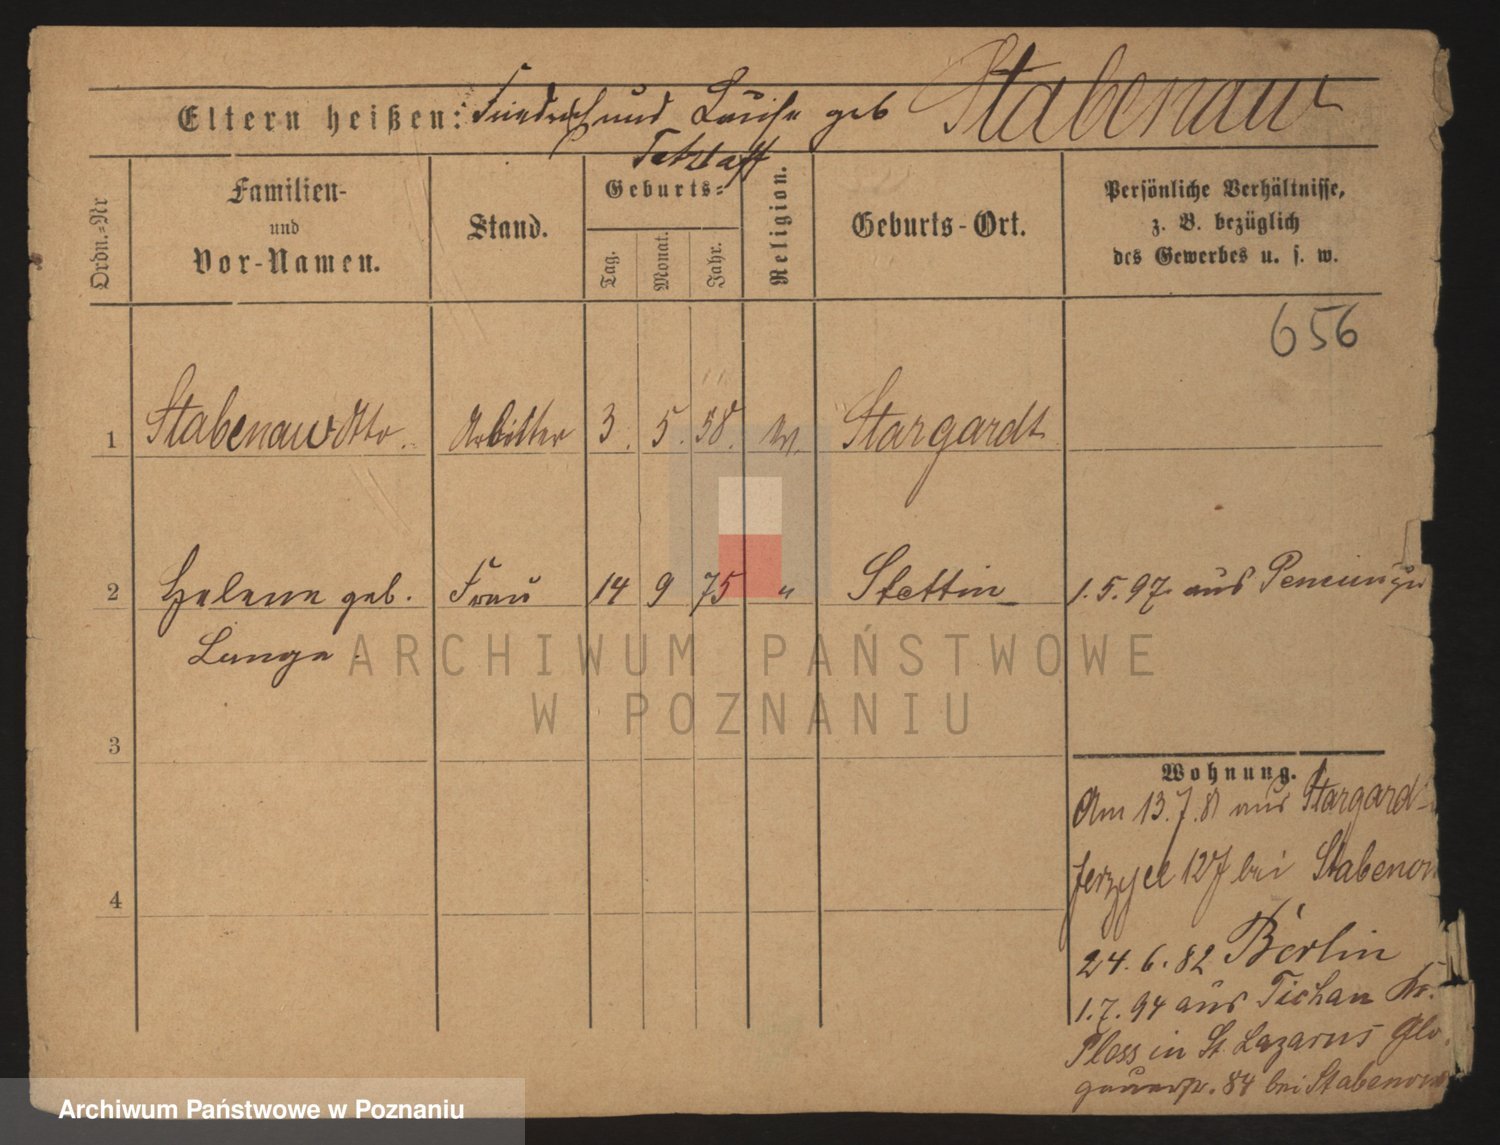 Stabenau
Eltern heißen: Friedrich und Louise geb
Tetzlaff
Ordn.=Nr
Familien-
und
Vor-Namen.
Stand.
Geburts=
Tag.
Monat.
Jahr.
Religion.
Geburts-Ort.
Persönliche Verhältnisse,
z. B. bezüglich
des Gewerbes u. s. w.
656
1 Stabenau Otto. Arbeiter 3. 5. 58. Stargardt
2 Helene geb. Frau 14 9 75 " Stettin 1.5.97. aus
Lange.
3
Wohnung.
Am 13.7.81 aus Stargard
127 bei Stabenow
4
24.6.82 Berlin
1.7.94 aus Tichau Kr.
Pless in St. Lazarus Glo
gauerstr. 84 bei Stabenow
ARCHIWUM PAŃSTWOWE
W POZNANIU
Archiwum Państwowe w Poznaniu